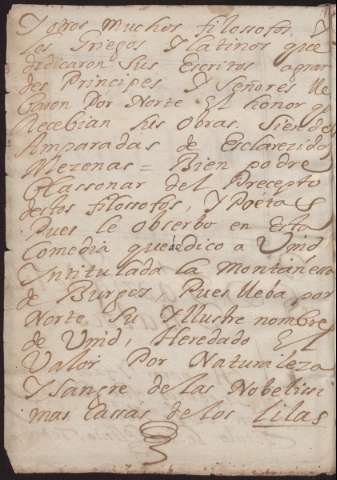 Y otros muchos filossofos, Y
los Griegos Y latinos que
dedicaron sus Escritos a gran
des Principes Y Señores lle
baron Por Norte El honor q
Recebian sus obras, Siendo
Amparadas de Esclarezidos
Mezenas = Bien podre
blassonar del Precepto
destos filossofos, Y Poetas
Pues le obserbo en Esta
Comedia que dedico a Vmd
Yntitulada la Montañesa
de Burgos Pues lleba, por
Norte, Su Yllustre nombre
de Vmd, Heredado El
Valor Por Naturaleza
Y Sangre de las Nobelissi
mas Cassas de los Lilas